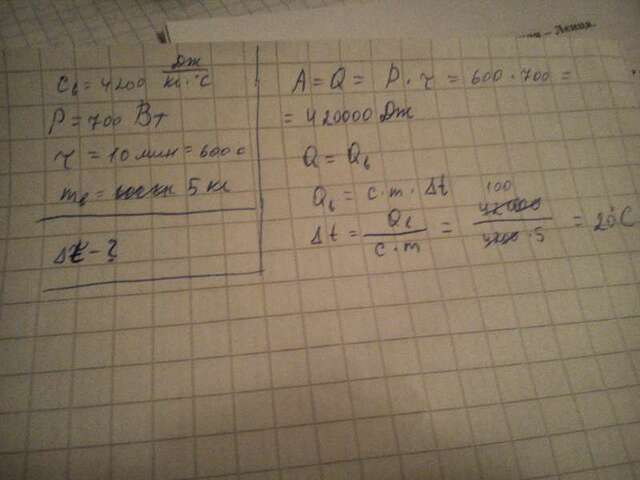 Ления.
C в = 4200 Дж / кг·°C
P = 700 Вт
τ = 10 мин = 600 с
m в = 5 кг
Δt - ?
A = Q = P · τ = 600 · 700 =
= 420000 Дж
Q = Q в
Q в = c · m · Δt
Δt = Q в / c · m = 420000 / 4200 · 5 = 20°C
100